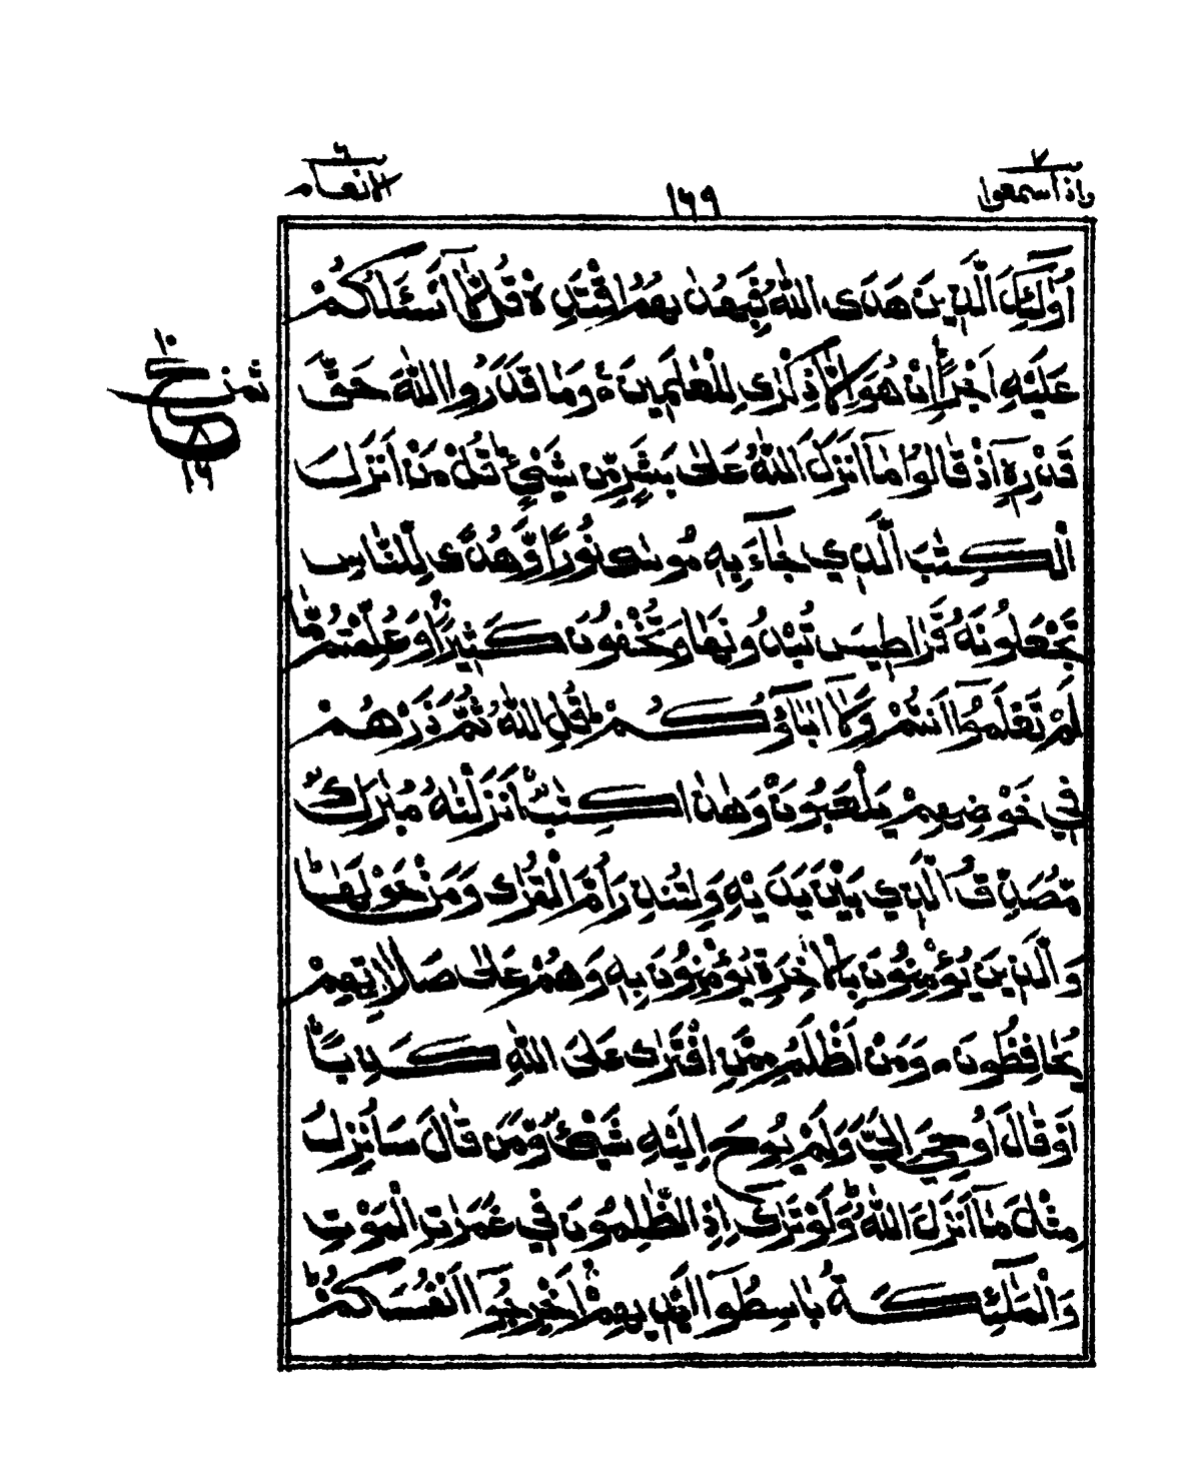 واذاسمعوا ٧
١٦٩
الانعام ٦
اُولٰٓئِكَ الَّذِيْنَ هَدَى اللّٰهُ فَبِهُدٰىهُمُ اقْتَدِهْ قُلْ لَّاۤ اَسْـَٔلُكُمْ
عَلَيْهِ اَجْرًا اِنْ هُوَ اِلَّا ذِكْرٰى لِلْعٰلَمِيْنَ وَمَا قَدَرُوا اللّٰهَ حَقَّ
قَدْرِهٖۤ اِذْ قَالُوْا مَاۤ اَنْزَلَ اللّٰهُ عَلٰى بَشَرٍ مِّنْ شَيْءٍ قُلْ مَنْ اَنْزَلَ
الْكِتٰبَ الَّذِيْ جَآءَ بِهٖ مُوْسٰى نُوْرًا وَّهُدًى لِّلنَّاسِ
تَجْعَلُوْنَهٗ قَرَاطِيْسَ تُبْدُوْنَهَا وَتُخْفُوْنَ كَثِيْرًا وَعُلِّمْتُمْ مَّا
لَمْ تَعْلَمُوْۤا اَنْتُمْ وَلَاۤ اٰبَآؤُكُمْ قُلِ اللّٰهُ ثُمَّ ذَرْهُمْ
فِيْ خَوْضِهِمْ يَلْعَبُوْنَ وَهٰذَا كِتٰبٌ اَنْزَلْنٰهُ مُبٰرَكٌ
مُّصَدِّقُ الَّذِيْ بَيْنَ يَدَيْهِ وَلِتُنْذِرَ اُمَّ الْقُرٰى وَمَنْ حَوْلَهَا
وَالَّذِيْنَ يُؤْمِنُوْنَ بِالْاٰخِرَةِ يُؤْمِنُوْنَ بِهٖ وَهُمْ عَلٰى صَلَاتِهِمْ
يُحَافِظُوْنَ وَمَنْ اَظْلَمُ مِمَّنِ افْتَرٰى عَلَى اللّٰهِ كَذِبًا
اَوْ قَالَ اُوْحِيَ اِلَيَّ وَلَمْ يُوْحَ اِلَيْهِ شَيْءٌ وَّمَنْ قَالَ سَاُنْزِلُ
مِثْلَ مَاۤ اَنْزَلَ اللّٰهُ وَلَوْ تَرٰۤى اِذِ الظّٰلِمُوْنَ فِيْ غَمَرٰتِ الْمَوْتِ
وَالْمَلٰٓئِكَةُ بَاسِطُوْۤا اَيْدِيْهِمْ اَخْرِجُوْۤا اَنْفُسَكُمْ